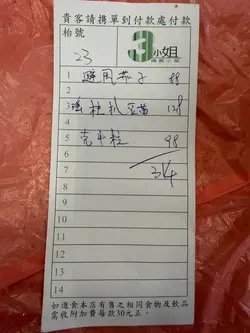 貴客請携單到付款處付款
枱號
23
3小姐
1 避風茄子 88
2
3 瑤柱扒豆苗 128
4
5 98
6
7 314
8
9
10
11
12
13
14
如進食本店有售之相同食物及飲品
需收附加費每款30元正。